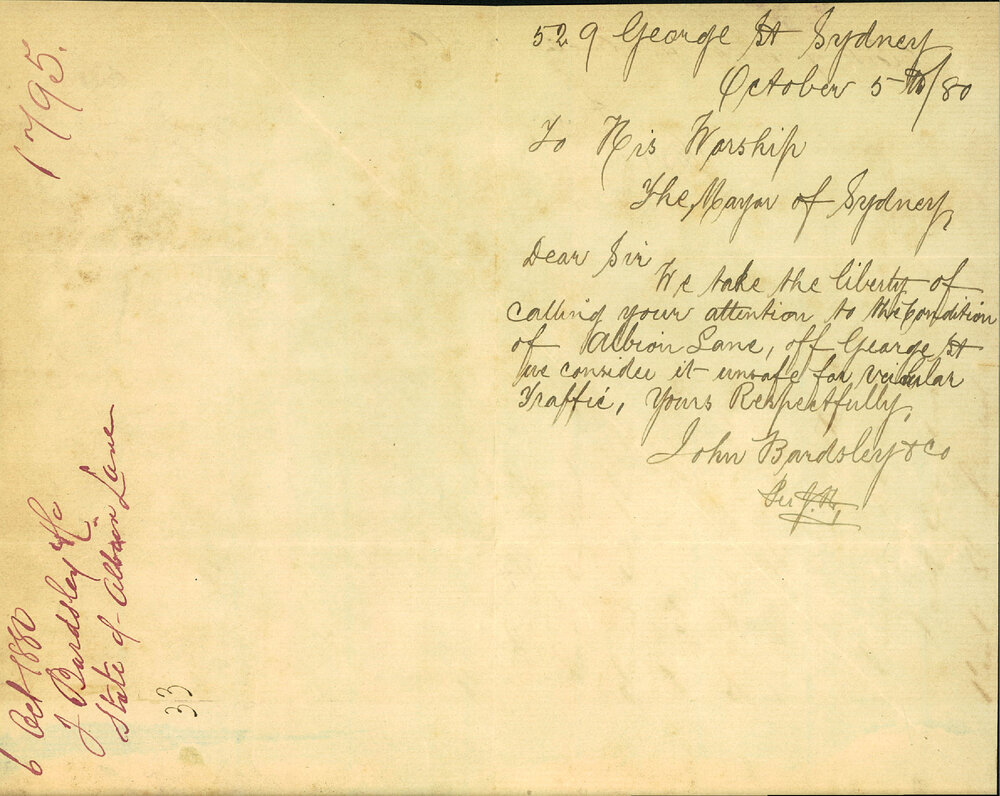 529 George St Sydney
October 5th/80
To His Worship
The Mayor of Sydney,
Dear Sir
We take the liberty of
calling your attention to the Condition
of Albion Lane, off George St
we consider it unsafe for veicular
Traffic, Yours Respectfully,
John Bardsley & Co
Per J.H.
1795.
6 Oct 1880
J Bardsley & Co
State of Albion Lane
33